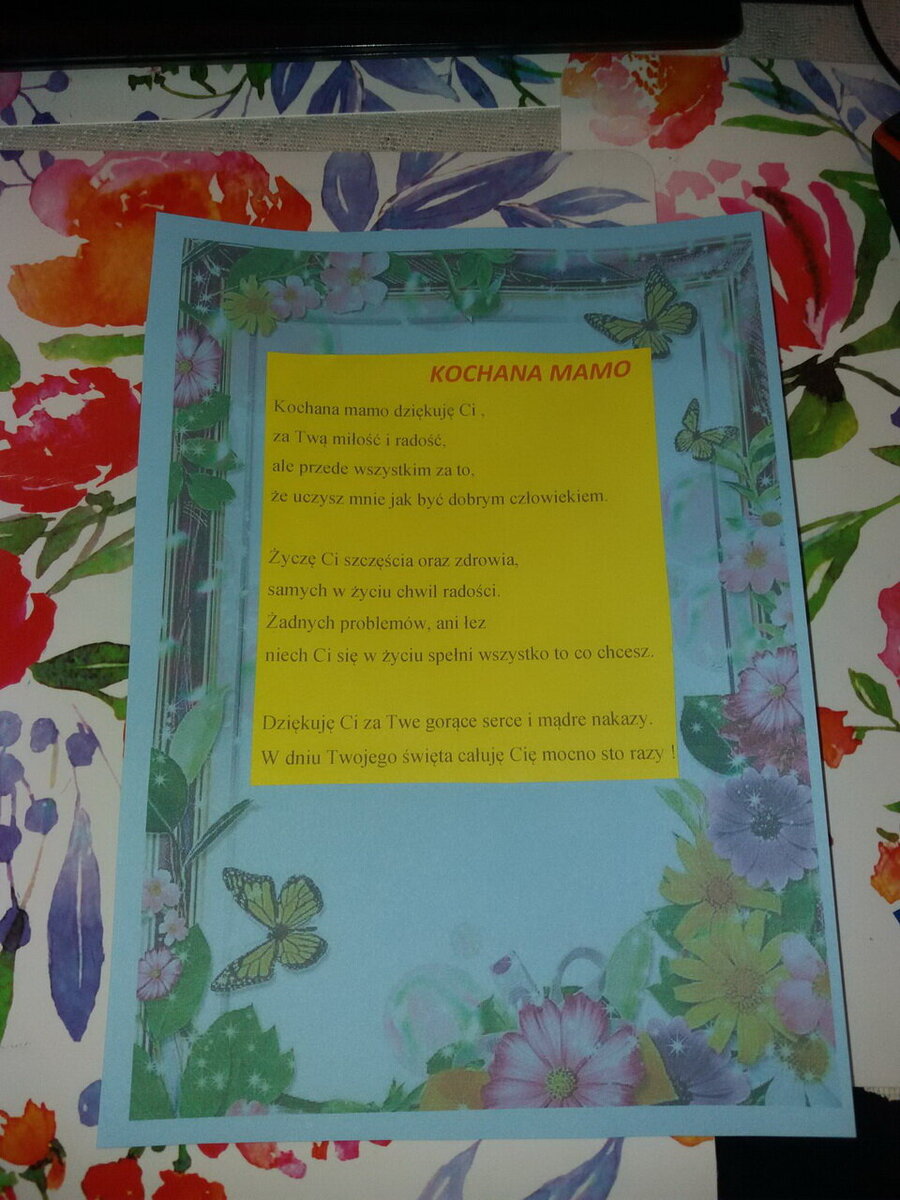 KOCHANA MAMO
Kochana mamo dziękuję Ci ,
za Twą miłość i radość,
ale przede wszystkim za to,
że uczysz mnie jak być dobrym człowiekiem.
Życzę Ci szczęścia oraz zdrowia,
samych w życiu chwil radości.
Żadnych problemów, ani łez
niech Ci się w życiu spełni wszystko to co chcesz.
Dziękuję Ci za Twe gorące serce i mądre nakazy.
W dniu Twojego święta całuję Cię mocno sto razy !